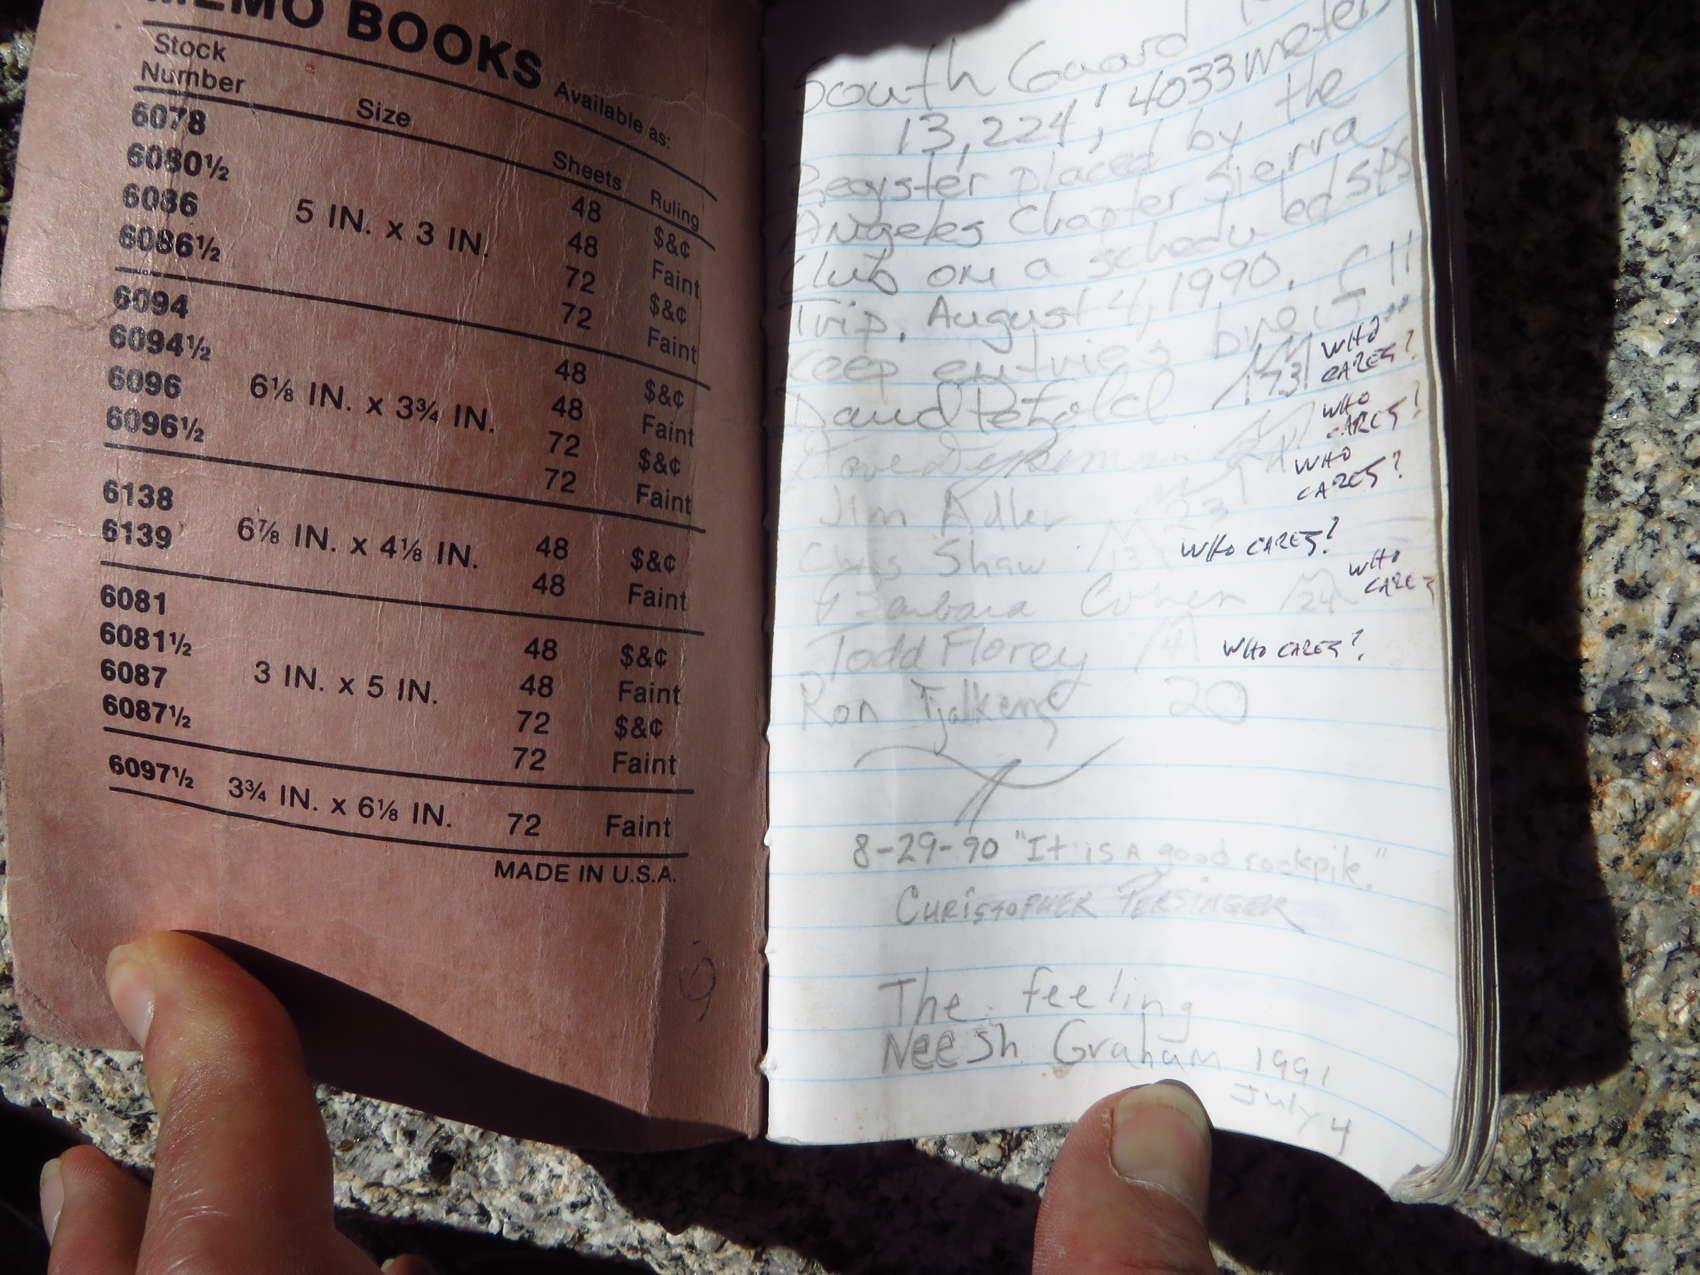 MEMO BOOKS
Available as:
Stock Number Size Sheets Ruling
6078 48 $&¢
6080½ 48 Faint
6086 5 IN. x 3 IN. 72 $&¢
6086½ 72 Faint
6094 48 $&¢
6094½ 48 Faint
6096 6⅛ IN. x 3¾ IN. 72 $&¢
6096½ 72 Faint
6138 48 $&¢
6139 6⅞ IN. x 4⅛ IN. 48 Faint
6081 48 $&¢
6081½ 48 Faint
6087 3 IN. x 5 IN. 72 $&¢
6087½ 72 Faint
6097½ 3¾ IN. x 6⅛ IN. 72 Faint
MADE IN U.S.A.
South Guard
13,224', 4033 meters
Register placed by the
Angeles Chapter Sierra
Club on a scheduled SPS
Trip, August 4, 1990.
keep entries brief
WHO CARES?
WHO CARES?
WHO CARES?
Jim Adler 23
Chris Shaw WHO CARES?
Barbara Cohen 24 WHO CARES
Todd Florey WHO CARES?
Ron 20
8-29-90 "It is a good rockpile."
CHRISTOPHER PERSINGER
The feeling
Neesh Graham 1991
July 4